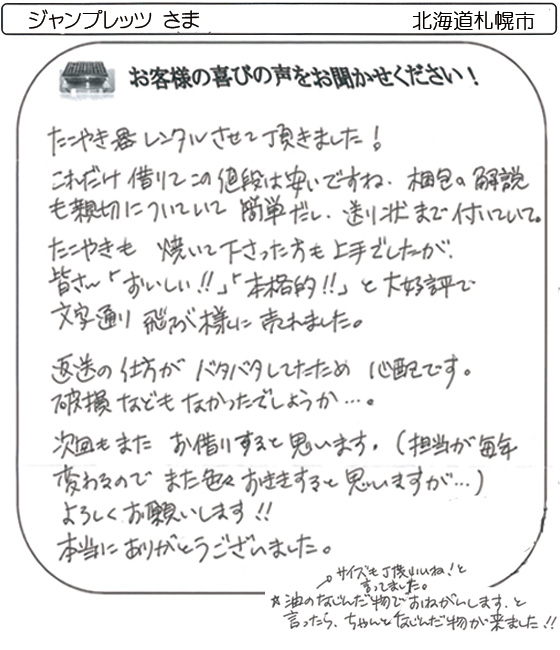 ジャンプレッツ さま
北海道札幌市
お客様の喜びの声をお聞かせください！
たこやき器レンタルさせて頂きました！
これだけ借りてこの値段は安いですね。梱包の解説
も親切についていて 簡単だし、送り状まで付いていて。
たこやきも 焼いて下さった方も上手でしたが、
皆さん「おいしい!!」「本格的!!」と大好評で
文字通り 飛ぶ様に売れました。
返送の仕方が バタバタしてたため 心配です。
破損などもなかったでしょうか…。
次回もまた お借りすると思います。（担当が毎年
変わるので また色々おききすると思いますが…）
よろしくお願いします!!
本当にありがとうございました。
サイズも丁度いいね!と
言ってました。
☆油のなじんだ物でおねがいします。と
言ったら、ちゃんとなじんだ物が来ました!!